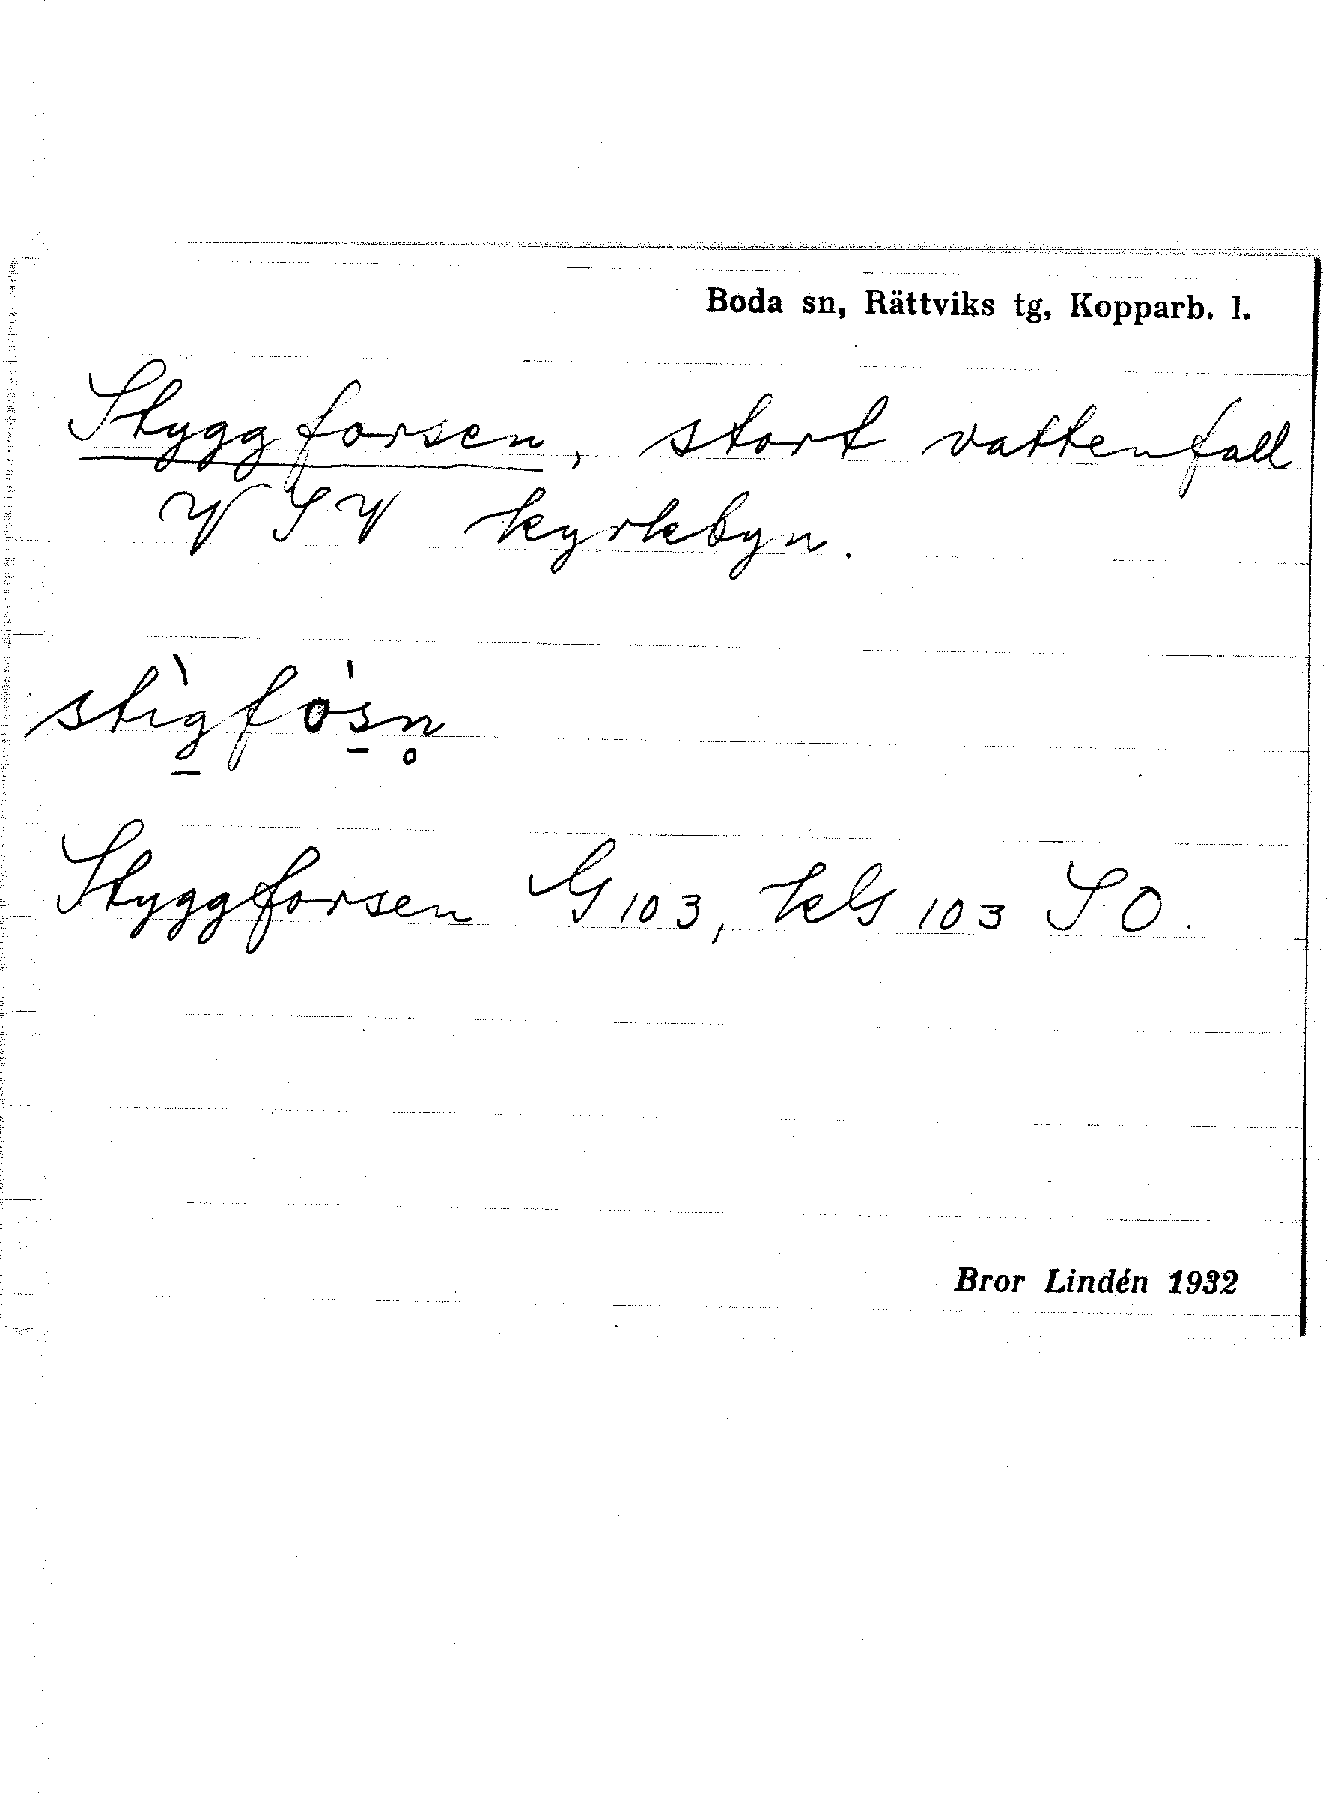 Boda sn, Rättviks tg, Kopparb. l.
Styggforsen, stort vattenfall
VSV kyrkbyn.
stìg̲fo̍s̲n̥
Styggforsen G 103, kG 103 SO.
Bror Lindén 1932